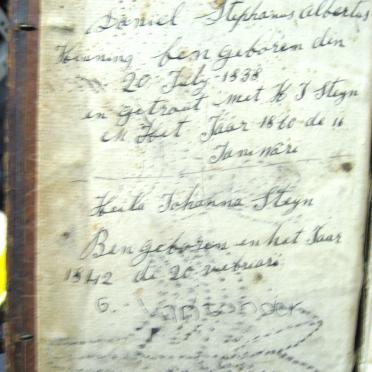 Daniel Stephanus Albertus
Henning ben geboren den
20 July 1838
en getraat met H J Steyn
in Het Jaar 1860 de 11
Januwari
Heila Johanna Steyn
Ben geboren en het Jaar
1842 de 20 vebruari